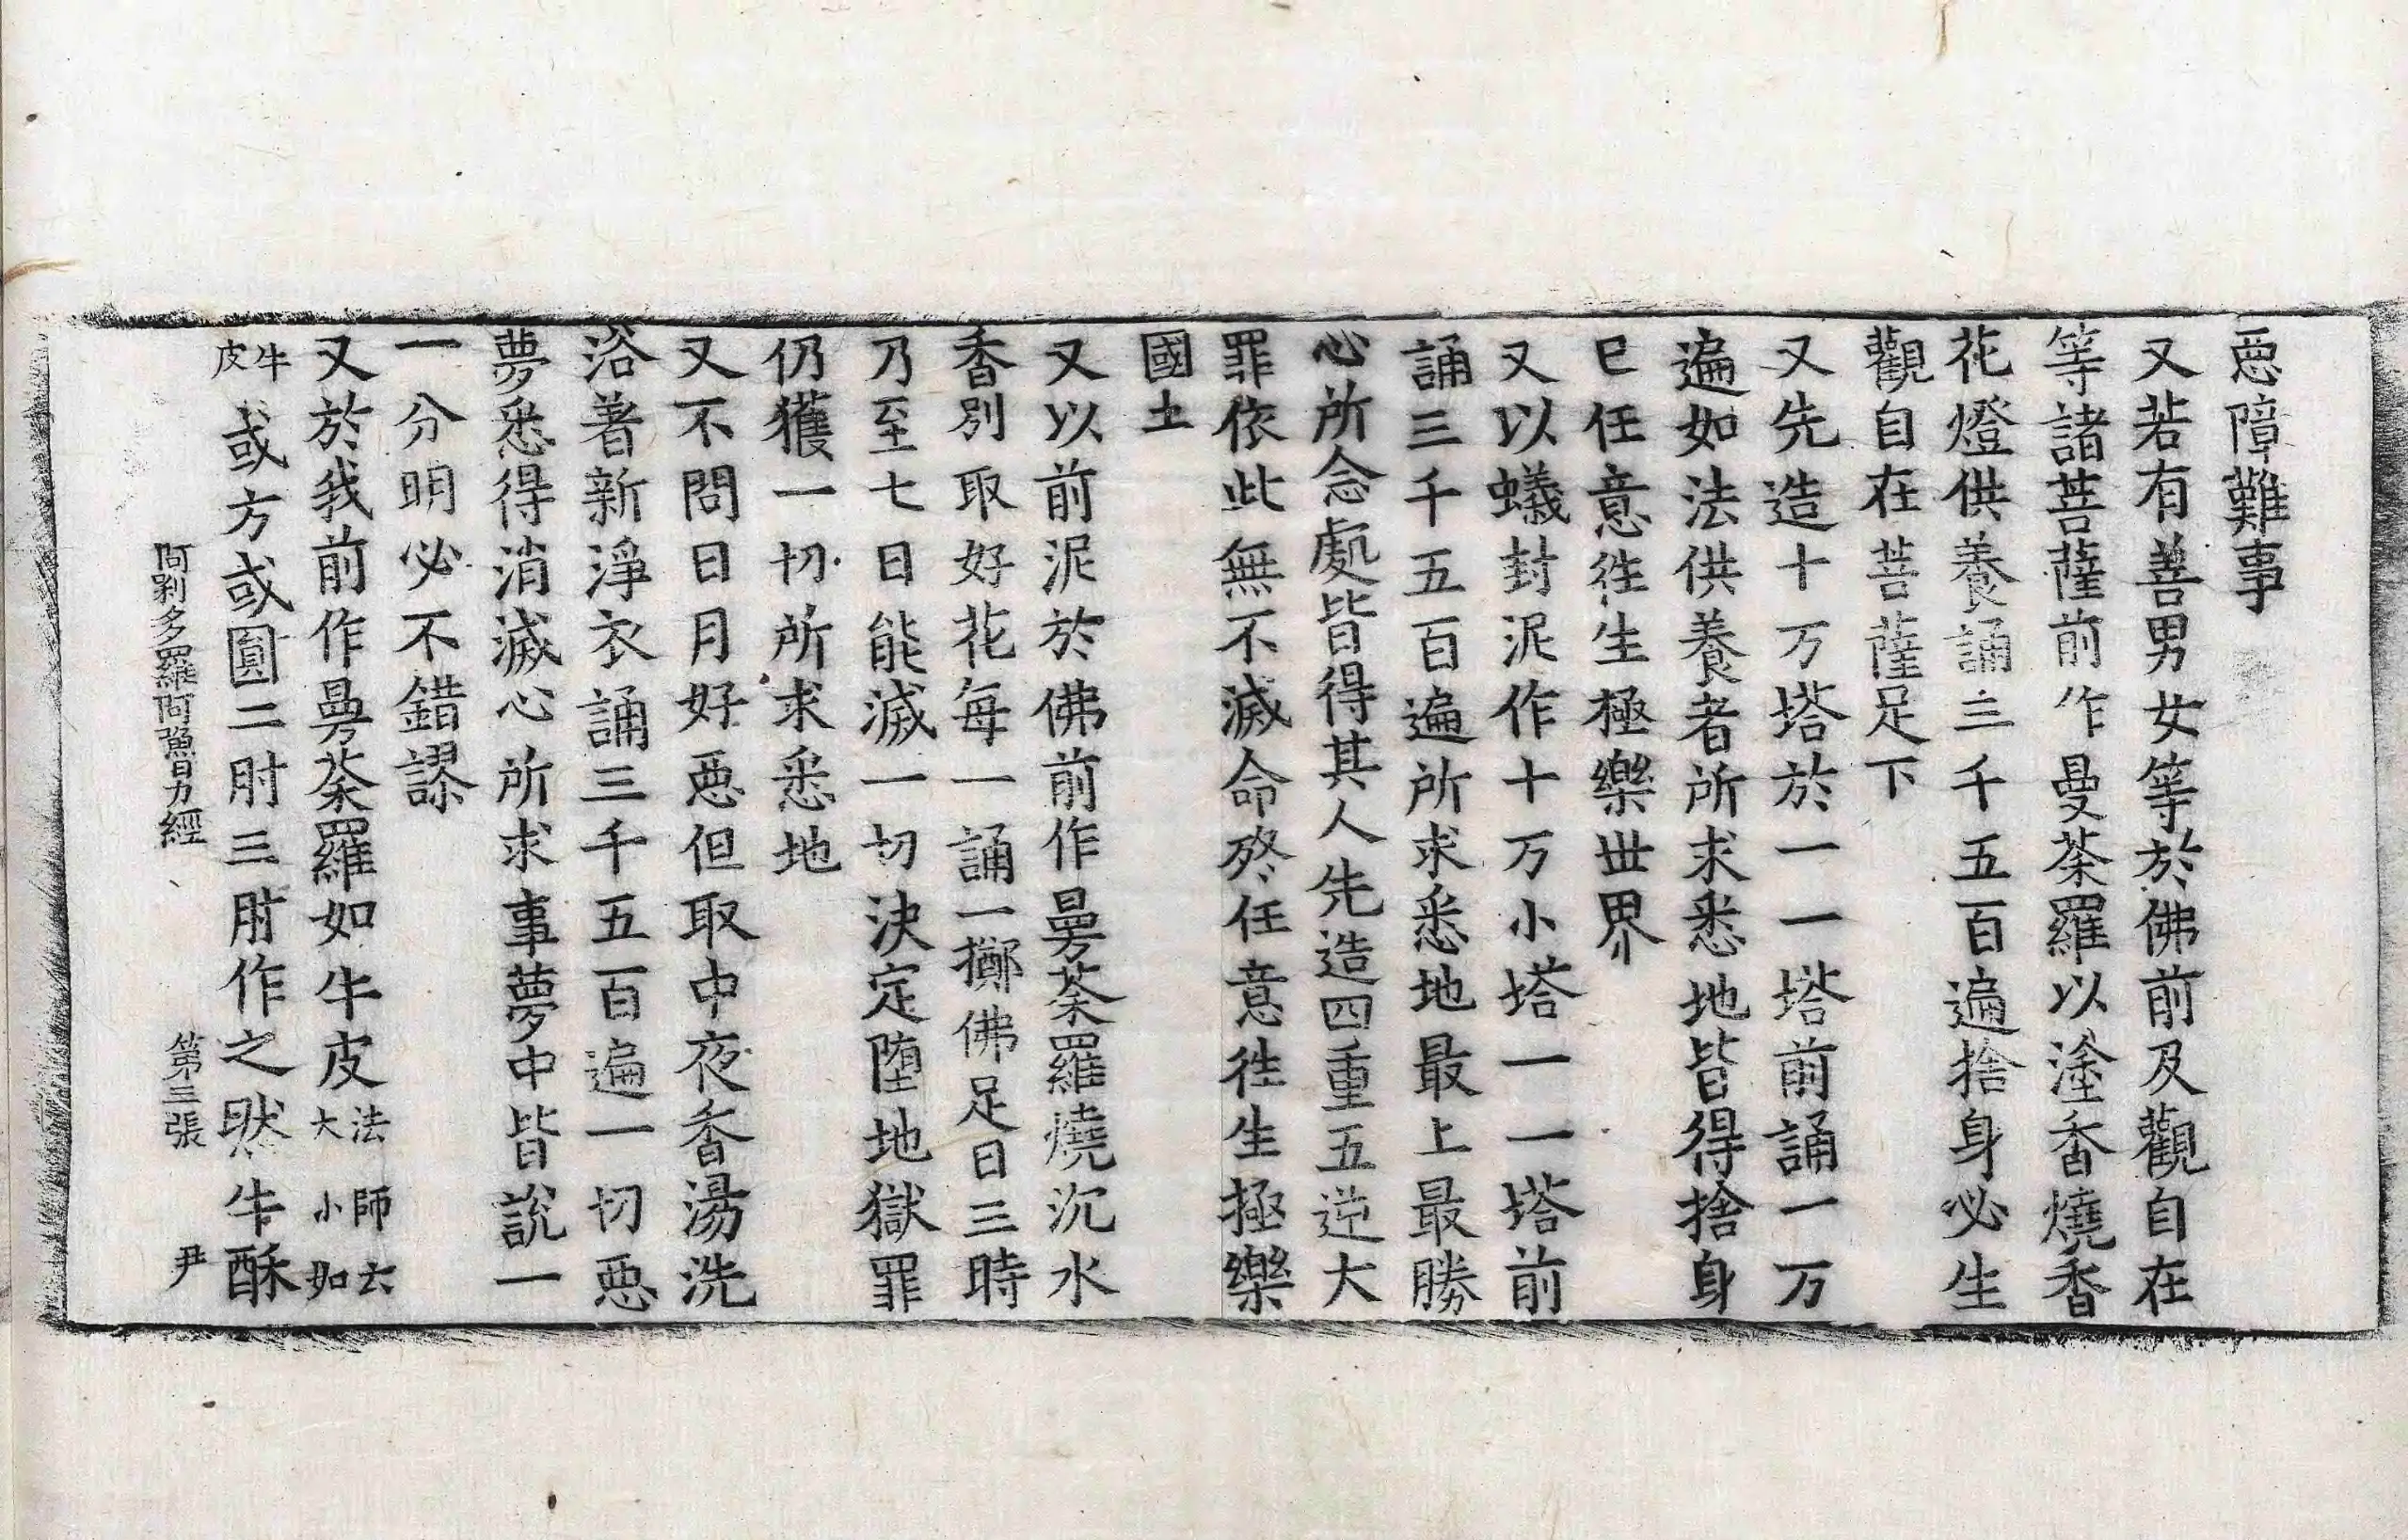 惡障難事
又若有善男女等於佛前及觀自在
等諸菩薩前作曼荼羅以塗香燒香
花燈供養誦三千五百遍捨身必生
觀自在菩薩足下
又先造十万塔於一一塔前誦一万
遍如法供養者所求悉地皆得捨身
已任意徃生極樂世界
又以蟻封泥作十万小塔一一塔前
誦三千五百遍所求悉地最上最勝
心所念處皆得其人先造四重五逆大
罪依此無不滅命終任意徃生極樂
國土
又以前泥於佛前作曼荼羅燒沉水
香別取好花每一誦一擲佛足日三時
乃至七日能滅一切決定墮地獄罪
仍獲一切所求悉地
又不問日月好惡但取中夜香湯洗
浴著新淨衣誦三千五百遍一切惡
夢悉得消滅心所求事夢中皆說一
一分明必不錯謬
又於我前作曼荼羅如牛皮法師云大小如
牛皮或方或圓二肘三肘作之然牛酥
阿唎多羅阿嚕力經 第三張 尹